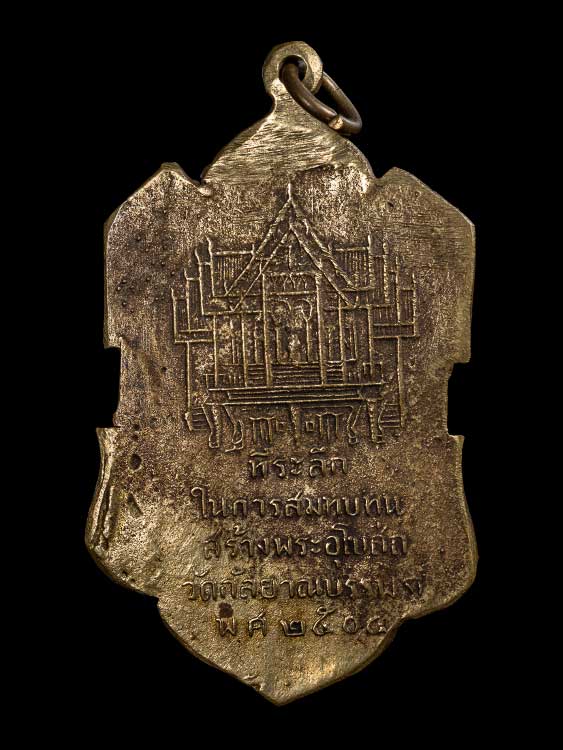 ที่ระลึก
ในการสมทบทุน
สร้างพระอุโบสถ
วัดกัลยาณบรรพต
พ ศ ๒๕๐๔